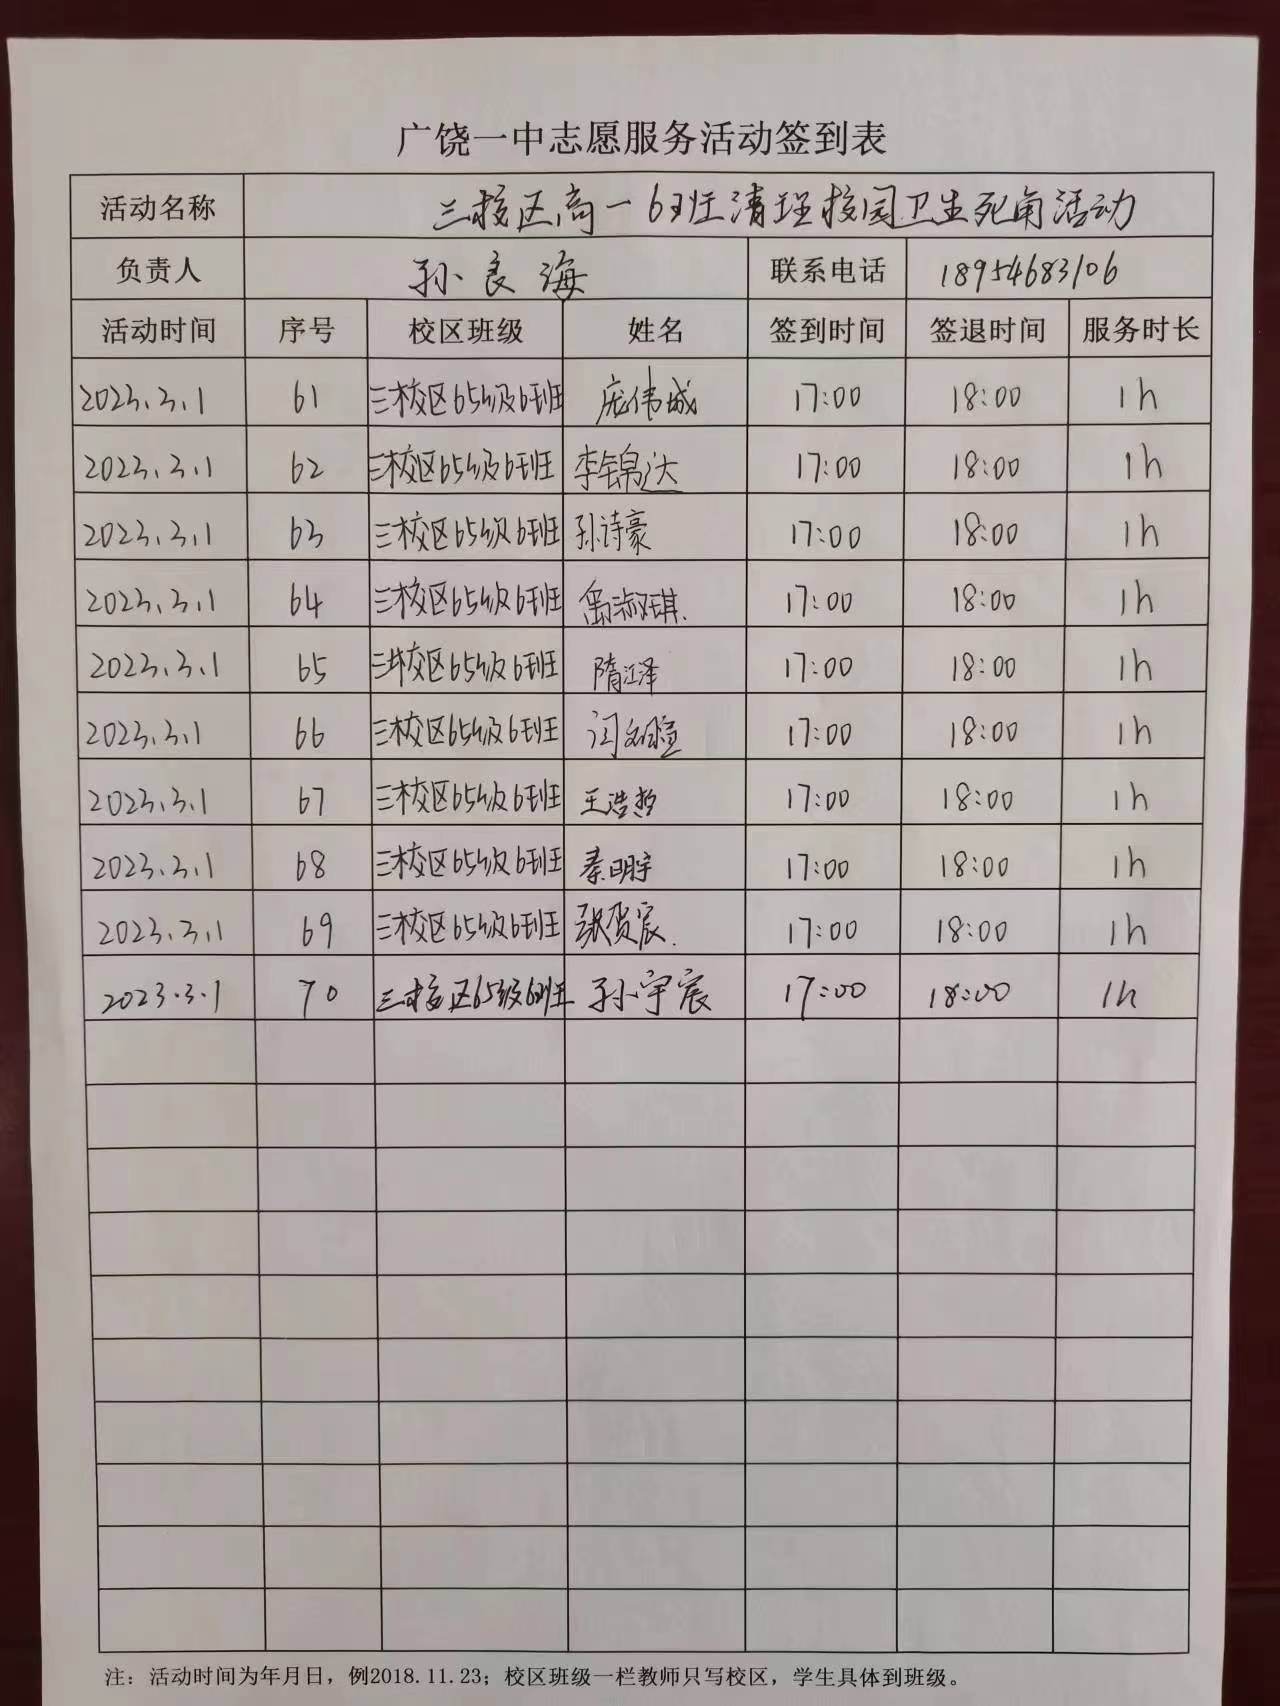 广饶一中志愿服务活动签到表
活动名称 三校区高一6班清理校园卫生死角活动
负责人 孙良海 联系电话 18954683106
活动时间 序号 校区班级 姓名 签到时间 签退时间 服务时长
2023.3.1 61 三校区65级6班 庞伟城 17:00 18:00 1h
2023.3.1 62 三校区65级6班 李锦达 17:00 18:00 1h
2023.3.1 63 三校区65级6班 孙诗豪 17:00 18:00 1h
2023.3.1 64 三校区65级6班 禹淑琪. 17:00 18:00 1h
2023.3.1 65 三校区65级6班 隋江泽 17:00 18:00 1h
2023.3.1 66 三校区65级6班 17:00 18:00 1h
2023.3.1 67 三校区65级6班 王浩哲 17:00 18:00 1h
2023.3.1 68 三校区65级6班 秦明宇 17:00 18:00 1h
2023.3.1 69 三校区65级6班 张贺宸. 17:00 18:00 1h
2023.3.1 70 三校区65级6班 孙宇宸 17:00 18:00 1h
注：活动时间为年月日，例2018.11.23；校区班级一栏教师只写校区，学生具体到班级。